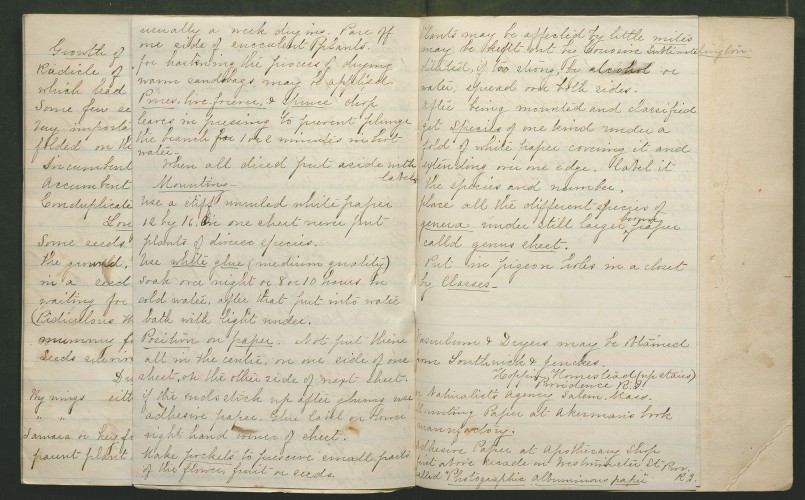 Growth of
Radicle of
which had
Some few se
Very importa
folded on th
Incumbent
Accumbent
Conduplicate
Lon
Some seeds
the ground,
in a seed
waiting for
(Ridiculous th
mummy f
Seeds
Du
Wings eith
" "
Samara or key fr
parent plant
usually a week drying. Pare off
one side of succulent plants.
for hastening the process of drying
warm sandbags may be applied.
Pines, & Spruce drop
leaves in pressing to prevent plunge
the branch for 1 or 2 minutes in hot
water.
When all dried put aside with
labels
Mounting -
Use a stiff unruled white paper
12 by 16. On one sheet never put
plants of diverse species.
Use white glue (medium quality)
soak over night or 8 or 10 hours in
cold water, after that put into water
bath with light under.
Position on paper. Not put them
all in the centre, on one side of one
sheet, on the other side of next sheet.
If the ends stick up after gluing use
adhesive paper. Glue label on lower
right hand corner of sheet.
Make pockets to preserve small parts
of the flower fruit or seeds.
Plants may be affected by little mites
may be kept out by Corrosive Sublimate
diluted, if too strong, by alcohol or
water, spread over both sides.
After being mounted and classified
get Species of one kind under a
fold of white paper covering it and
extending over one edge. Label it
the species and number.
place all the different species of
genera under still larger brown paper
called genus sheet.
Put in pigeon holes in a closet
by Classes -
Vasculum & Dryers may be obtained
from Southwick & Jencks.
Hoppin Homestead (up stairs)
Providence R.I.
or Naturalists Agency Salem, Mass.
Mounting Paper at Akerman's book
manufactory.
Adhesive Paper at Apothecary Shop
just above Arcade on Westminster St. Prov.
R.I.
called "Photographic albuminous paper